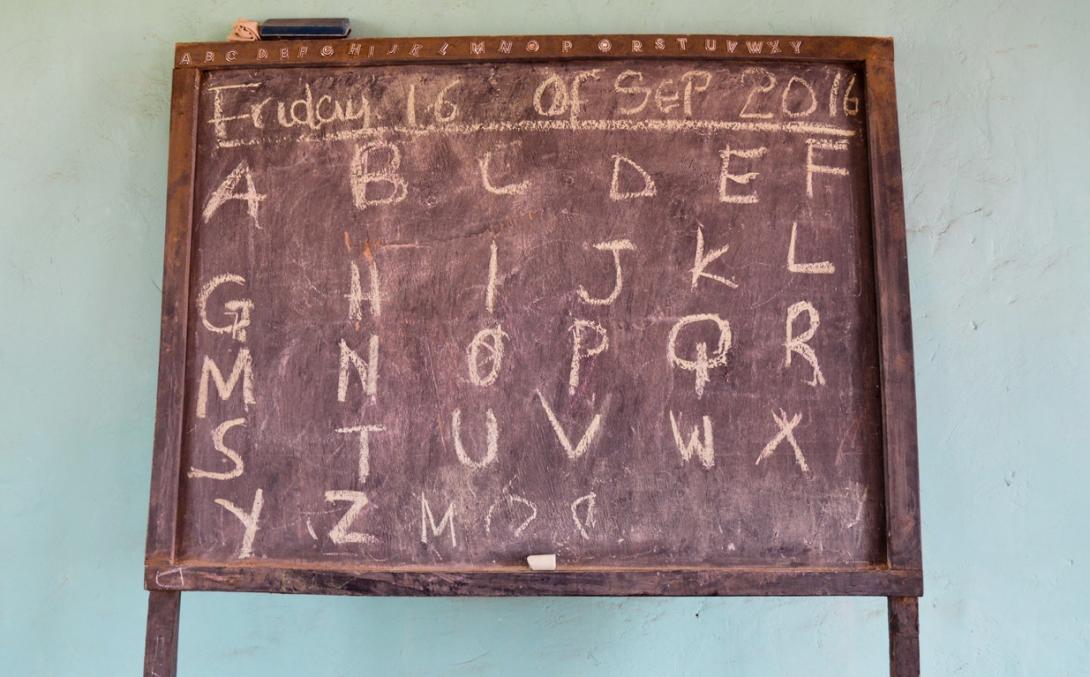 A B C D E F G H I J K L M N O P Q R S T U V W X Y
Friday 16 OF SEP 2016
A B C D E F
G H I J K L
M N O P Q R
S T U V W X
Y Z M